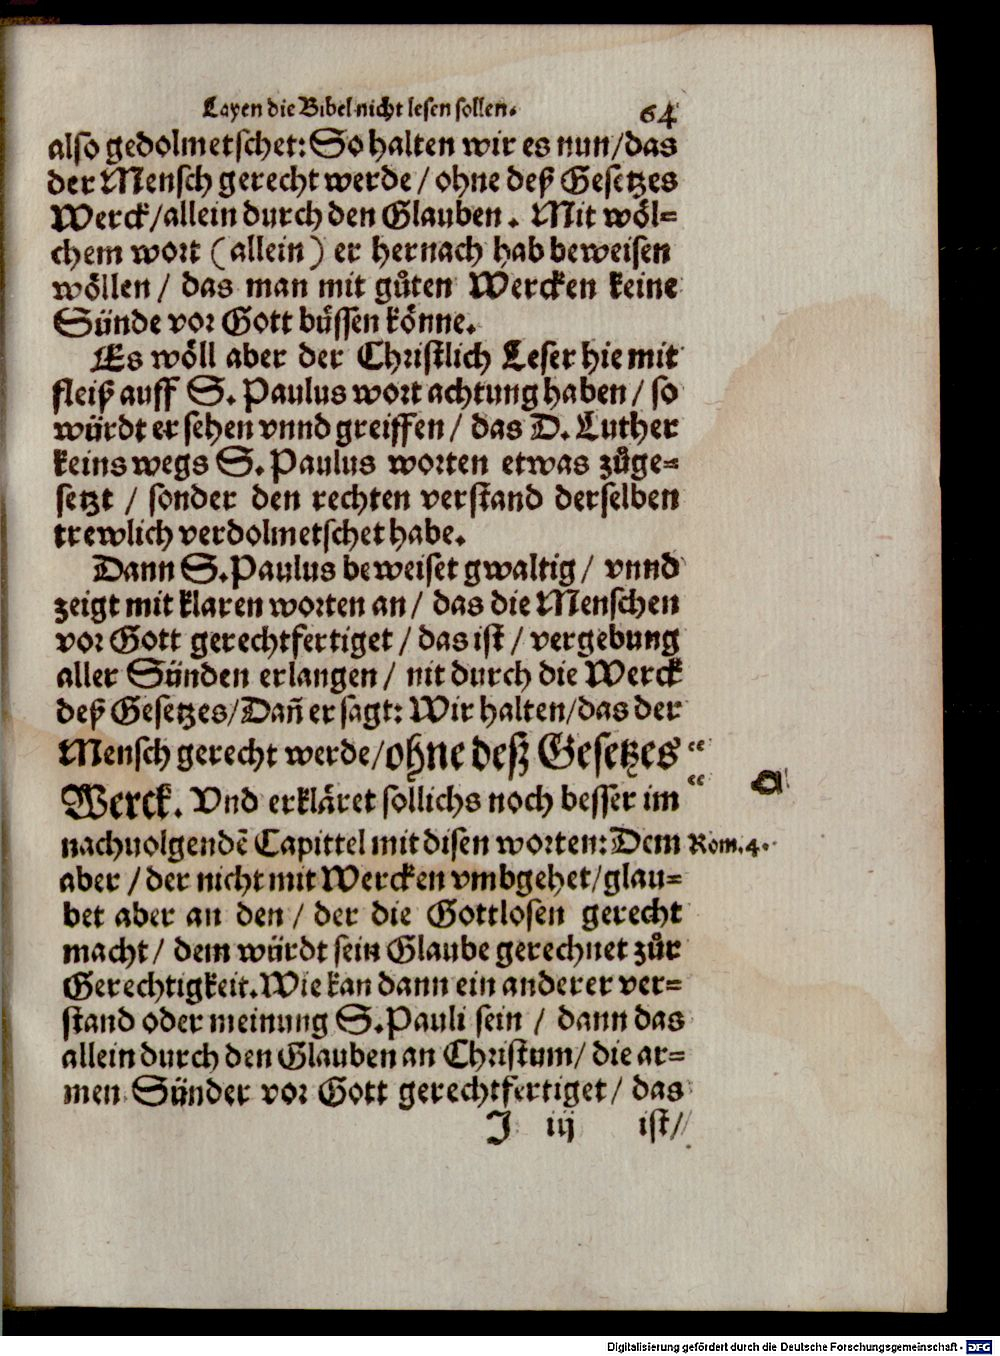 Layen die Bibel nicht lesen sollen. 64
also gedolmetschet: So halten wir es nun/das
der Mensch gerecht werde / ohne deß Gesetzes
Werck/allein durch den Glauben. Mit wöl=
chem wort (allein) er hernach hab beweisen
wöllen / das man mit gůten Wercken keine
Sünde vor Gott büssen könne.
Es wöll aber der Christlich Leser hie mit
fleiß auff S. Paulus wort achtung haben / so
würdt er sehen vnnd greiffen / das D. Luther
keins wegs S. Paulus worten etwas zůge=
setzt / sonder den rechten verstand derselben
trewlich verdolmetschet habe.
Dann S. Paulus beweiset gwaltig / vnnd
zeigt mit klaren worten an / das die Menschen
vor Gott gerechtfertiget / das ist / vergebung
aller Sünden erlangen / nit durch die Werck
deß Gesetzes/Dañ er sagt: Wir halten/das der
Mensch gerecht werde/ohne deß Gesetzes “
Werck. Vnd erkläret sollichs noch besser im “
nachuolgendē Capittel mit disen worten: Dem Rom. 4.
aber / der nicht mit Wercken vmbgehet/glau=
bet aber an den / der die Gottlosen gerecht
macht / dem würdt sein Glaube gerechnet zůr
Gerechtigkeit. Wie kan dann ein anderer ver=
stand oder meinung S. Pauli sein / dann das
allein durch den Glauben an Christum/ die ar=
men Sünder vor Gott gerechtfertiget / das
J iiij ist/
Digitalisierung gefördert durch die Deutsche Forschungsgemeinschaft - DFG